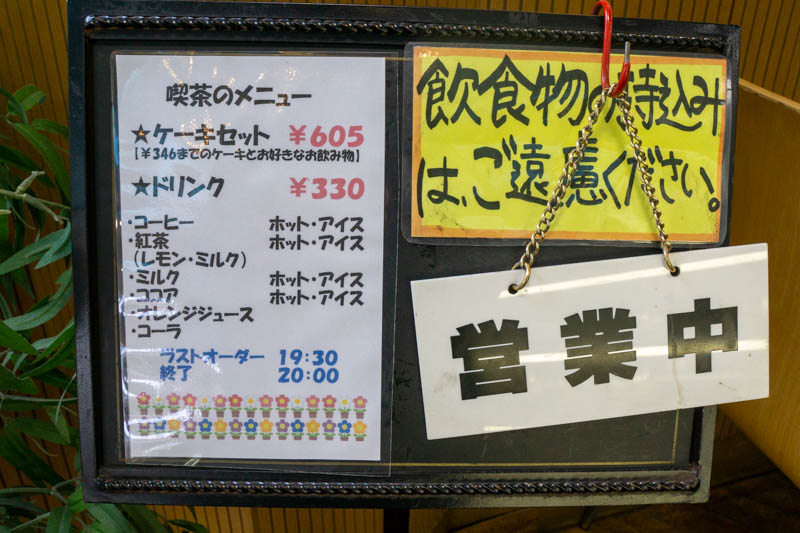 喫茶のメニュー
★ケーキセット ￥605
【￥346までのケーキとお好きなお飲み物】
★ドリンク ￥330
・コーヒー ホット・アイス
・紅茶 ホット・アイス
（レモン・ミルク）
・ミルク ホット・アイス
・ココア ホット・アイス
・オレンジジュース
・コーラ
ラストオーダー 19:30
終了 20:00
飲食物の持込み
は、ご遠慮ください。
営業中